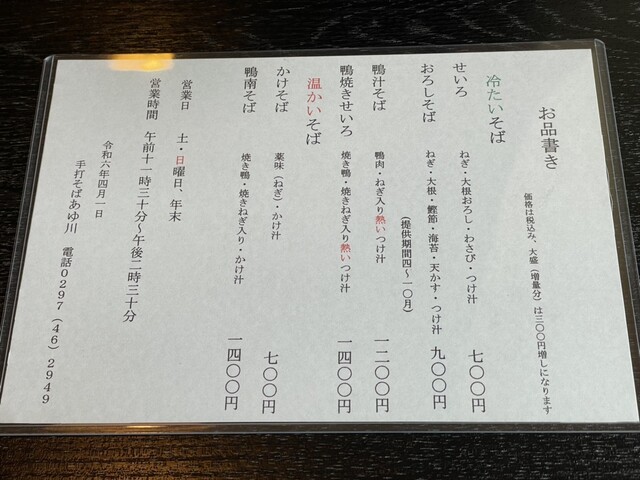 お品書き
価格は税込み、大盛（増量分）は三〇〇円増しになります
冷たいそば
せいろ　ねぎ・大根おろし・わさび・つけ汁　七〇〇円
おろしそば　ねぎ・大根・鰹節・海苔・天かす・つけ汁　九〇〇円
（提供期間四～一〇月）
鴨汁そば　鴨肉・ねぎ入り熱いつけ汁　一二〇〇円
鴨焼きせいろ　焼き鴨・焼きねぎ入り熱いつけ汁　一四〇〇円
温かいそば
かけそば　薬味（ねぎ）・かけ汁　七〇〇円
鴨南そば　焼き鴨・焼きねぎ入り・かけ汁　一四〇〇円
営業日　土・日曜日、年末
営業時間　午前十一時三十分～午後二時三十分
令和六年四月一日
手打そばあゆ川　電話０２９７（４６）２９４９